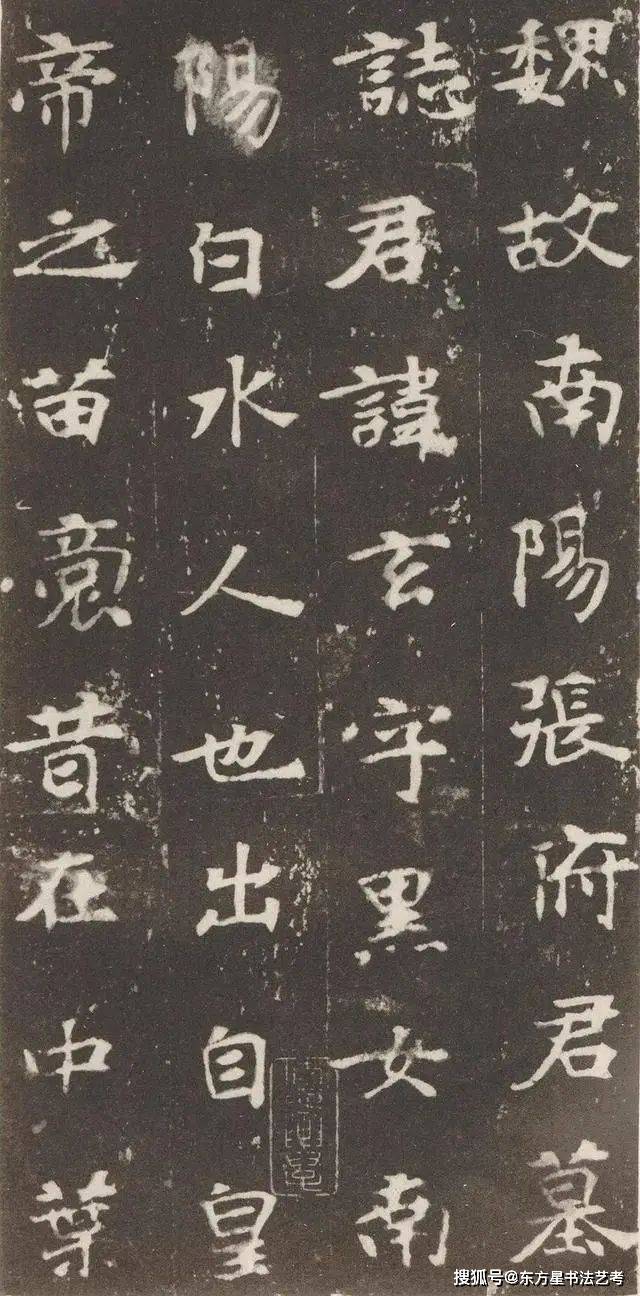 魏故南陽張府君墓
誌君諱玄字黑女南
陽白水人也出自皇
帝之苗裔昔在中葉
搜狐号@东方星书法艺考